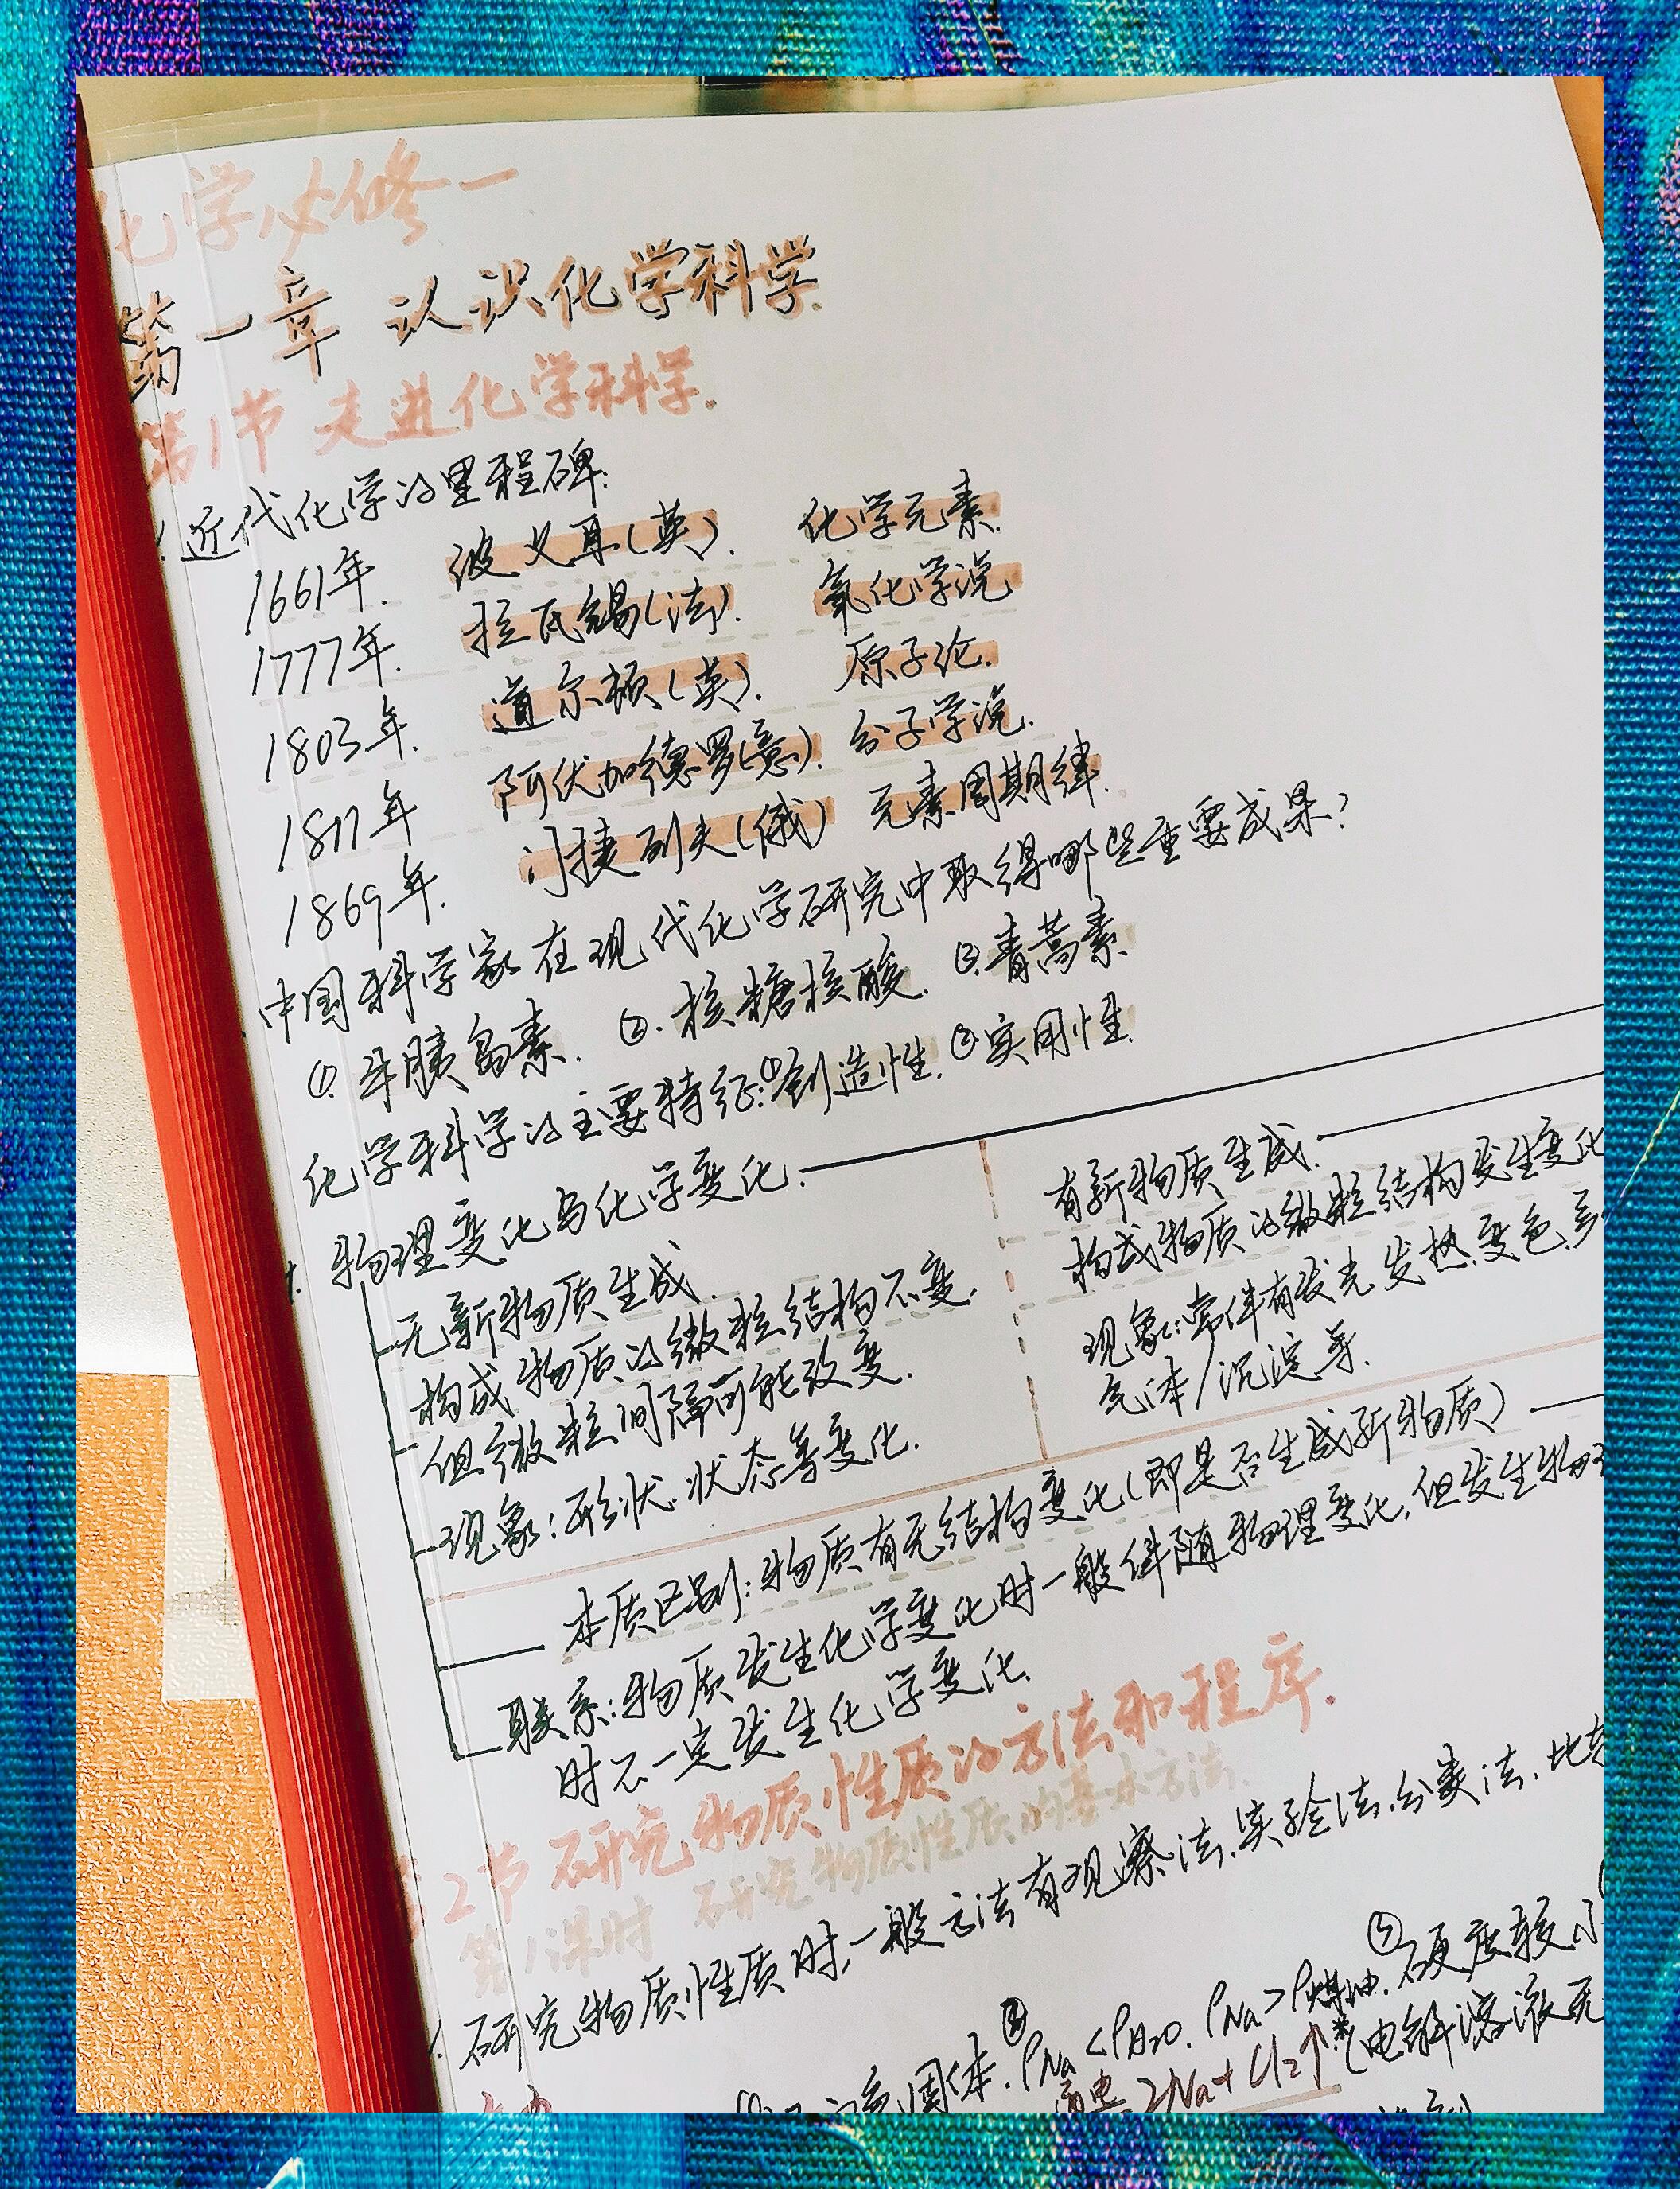 化学必修一
第一章 认识化学科学.
第1节 走进化学科学.
1.近代化学的里程碑:
1661年. 波义耳(英). 化学元素.
1777年. 拉瓦锡(法). 氧化学说
1803年. 道尔顿(英). 原子论.
1811年 阿伏加德罗(意). 分子学说.
1869年. 门捷列夫(俄) 元素周期律.
中国科学家在现代化学研究中取得哪些重要成果?
①.牛胰岛素. ②.核糖核酸. ③.青蒿素.
化学科学的主要特征:①创造性. ②实用性.
物理变化与化学变化.
无新物质生成.
构成物质的微粒结构不变.
但微粒间隔可能改变.
现象:形状.状态等变化.
有新物质生成.
构成物质的微粒结构发生变化
现象:常伴有发光.发热.变色.
气体/沉淀等.
本质区别:物质有无结构变化(即是否生成新物质)
联系:物质发生化学变化时一般伴随物理变化,但发生物
时不一定发生化学变化.
2节 研究物质性质的方法和程序.
第1课时 研究物质性质的基本方法.
1.研究物质性质时,一般方法有观察法.实验法.分类法.比
固体. ② ρNa<ρH2O. ρNa>ρ煤油. ③.硬度较小
通电 2Na+Cl2↑ *(电解溶液无